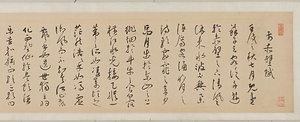 赤壁賦
壬戌之秋七月既望
蘇子與客泛舟遊
於赤壁之下清風
徐來水波不興舉
酒屬客誦明月之
詩歌窈窕之章少
焉月出於東山之上
徘徊於斗牛之間白露
橫江水光接天縱
一葦之所如凌萬頃之
茫然浩浩乎如馮虛
御風而不知其所止
飄飄乎如遺世獨立羽
化而登仙於是飲酒
樂甚扣舷而歌之歌